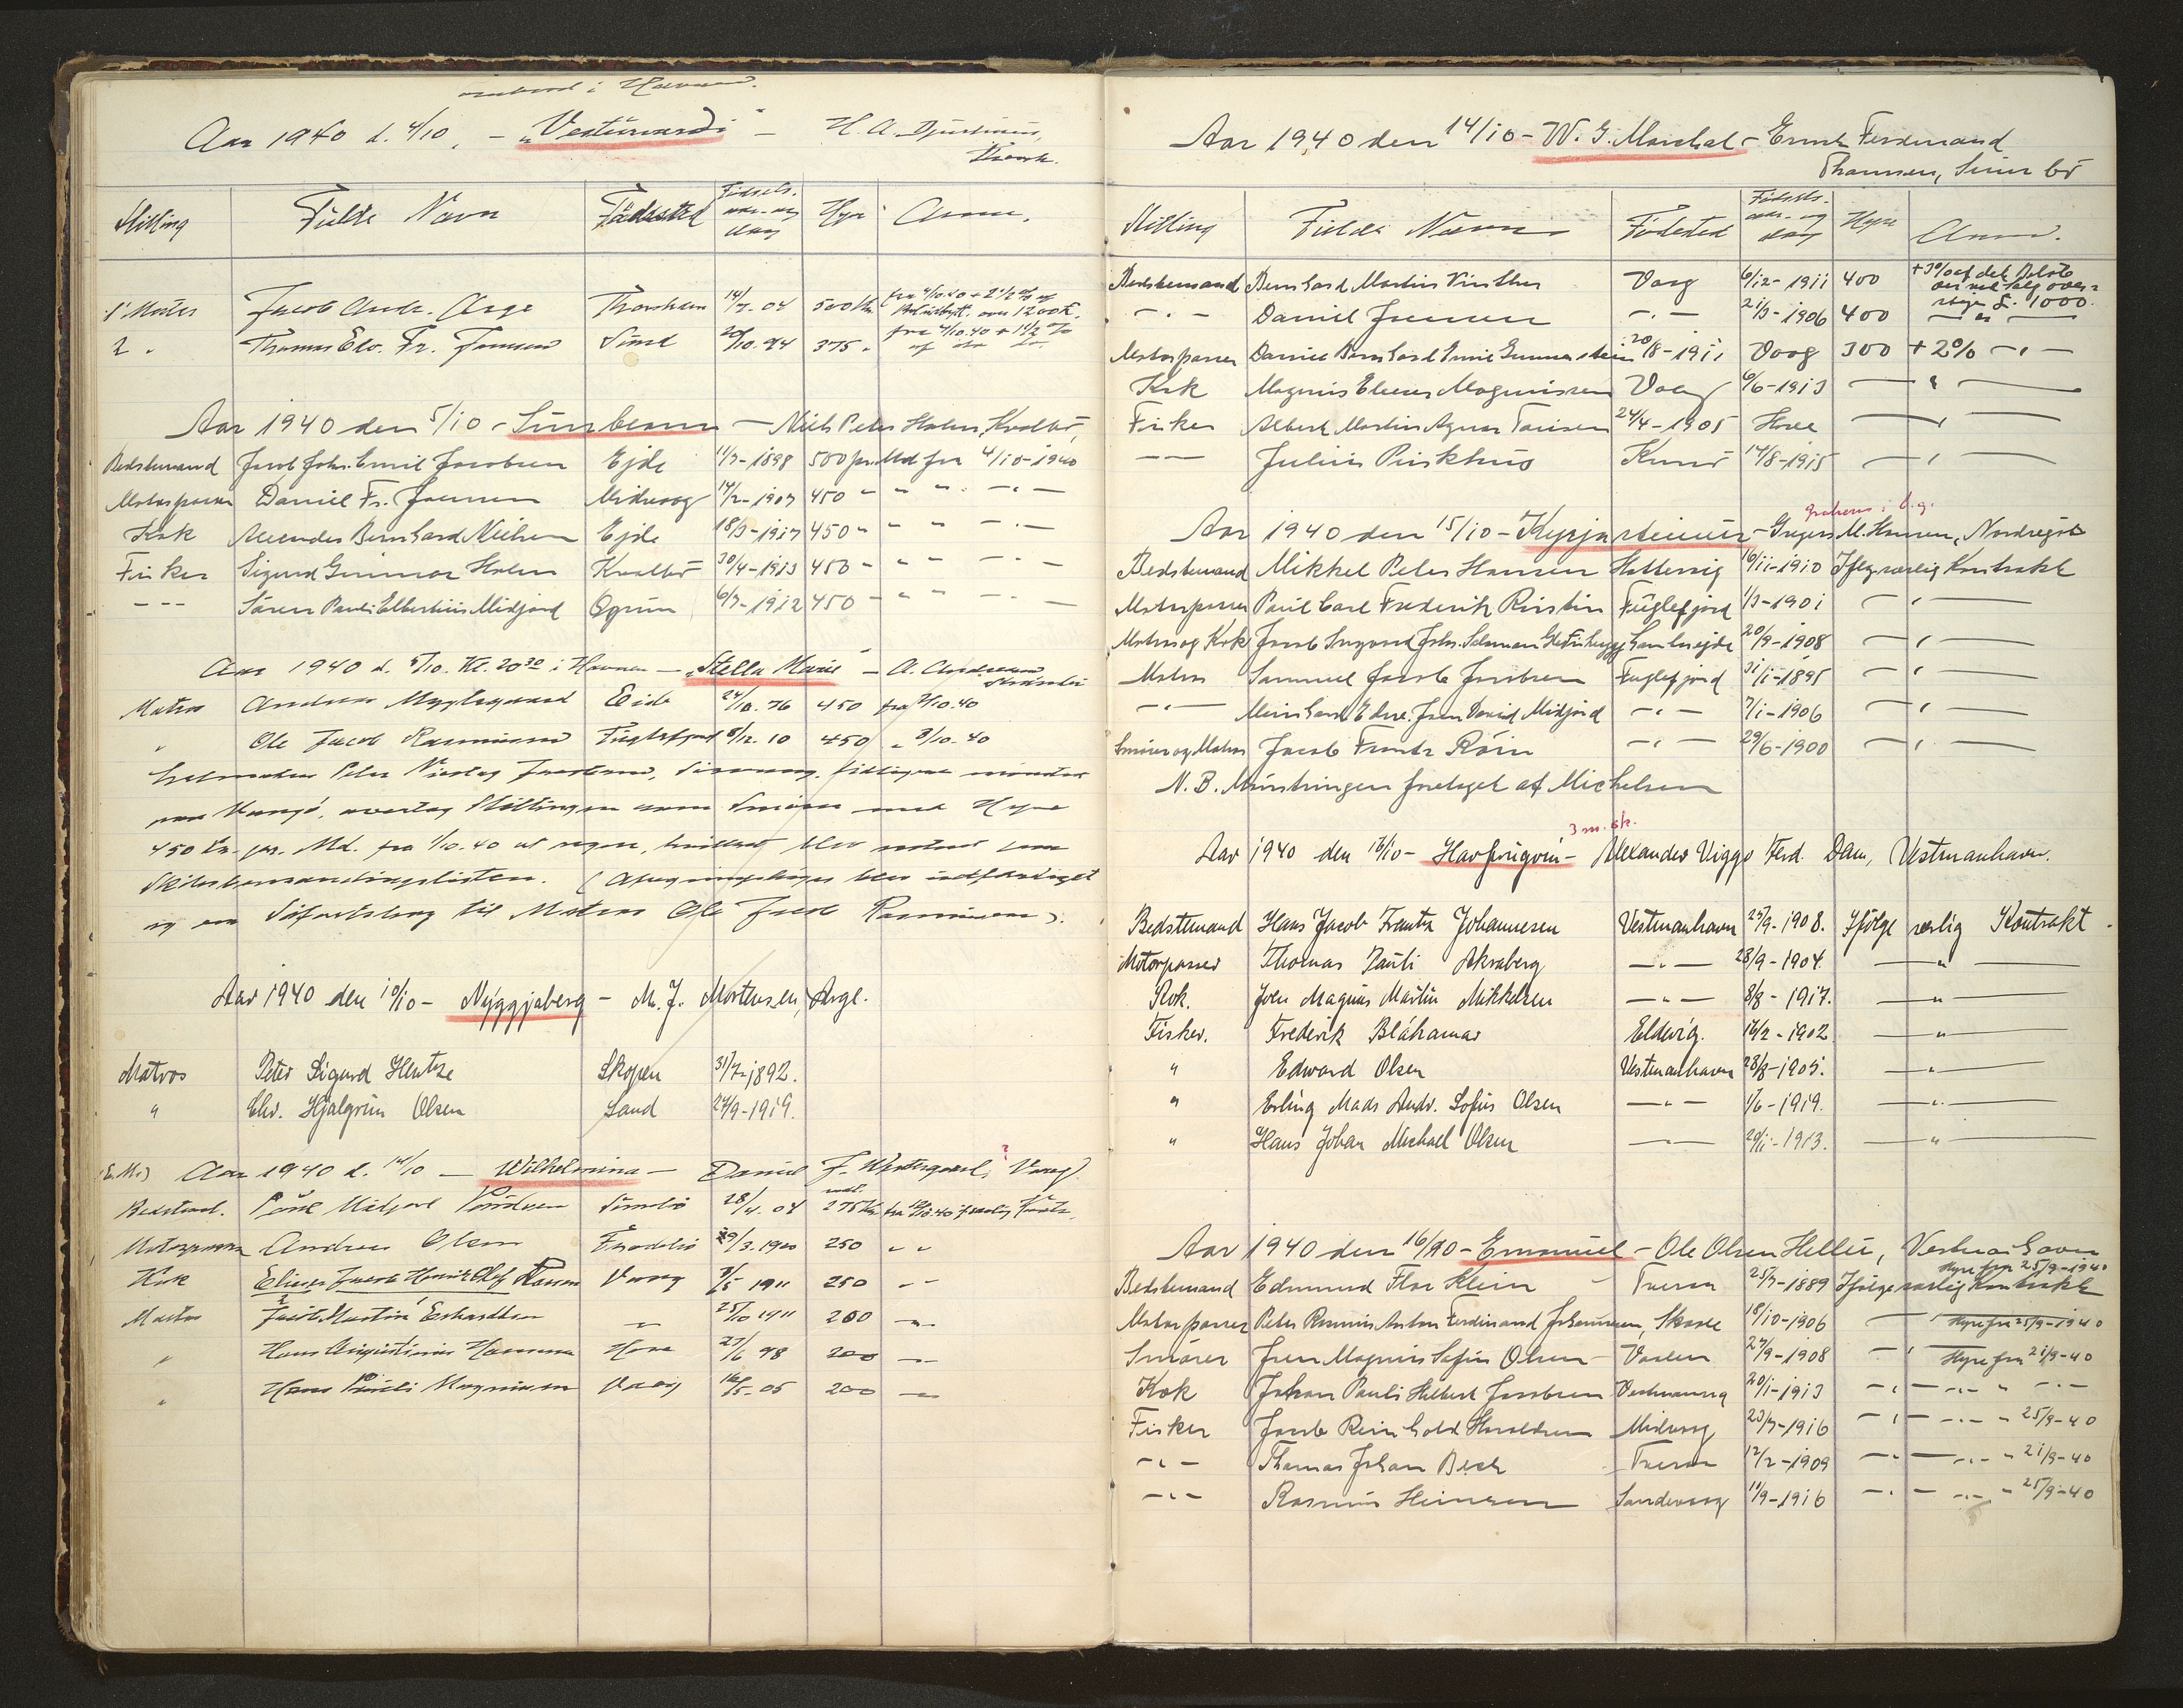 ombord i Havnen.
Aar 1940 d. 4/10. - "Vesturvardi" - H. A. Djurhuus,
Stilling Fulde Navn Fødested Fødsels- aar og dag Hyre Anm.
1' Mester Jacob Andr. Arge Thorshavn 14/7. 04 500 Kr. fra 4/10.40 + 2 1/2 % af
over 1200 £.
2 " Thomas Edv. Fr. Joensen Sund 20/10. 94 375 " fra 4/10.40 + 1 1/2 %
af do do
Aar 1940 den 5/10 - Sunbeam - Niels Peter Holm, Kvalbø,
Bedstemand Jacob Johs. Emil Jacobsen Ejde 11/7-1898 500 pr. Md fra 4/10-1940
Motorpasser Daniel Fr. Joensen Midvaag 14/2-1907 450 " " " - " -
Kok Bernhard Nielsen Ejde 18/3-1917 450 " " " - " -
Fisker Sigurd Gunnar Holm Kvalbø 30/4-1913 450 " " " - " -
- - - Sören Pauli Elbertinus Midjord Øgrim 6/7-1912 450 - " " - " -
Aar 1940 d. 5/10. Kl. 20 30 i Havnen - "Stella Marie" - A. Andreasen
Matros Andreas Myglegaard Eide 24/10. 76 450 fra 7/10.40
" Ole Jacob Rasmussen Fuglefjord 8/12. 10 450 " 8/10. 40
Peter Nicolaj Jacobsen, tidligere mönstret
overtog Stillingen som Smører med Hyre
450 Kr. pr. Md. fra 1/10.40 at regne, hvilket blev noteret paa
Skibsbemandingslisten. ( blev udfærdiget
og en Søfartsbog til Matros Ole Jacob Rasmussen ).
Aar 1940 den 10/10 - Nýggjaberg - M. J. Mortensen, Arge.
Matros Peter Sigurd Hentze Skopen 31/7-1892.
" Chr. Hjalgrim Olsen Sand 24/9-1919.
(E.M.) Aar 1940 d. 14/10 - Wilhelmina - Daniel J. Westergaard, ? Vaag
Bedstemd. Poul Midjord Sumbø 28/4. 04 275 Kr. fra 12/10.40
Motorpasser Andreas Olsen Frodebø 29/3.1900 250 " "
Kok Elieser Jacob Henrik Olaf Vaag 7/5 1911 250 " "
Matros Jacob Martin Erhardtsen - " - 25/10 1911 200 - " -
" Hans Augustinus Hammer Hove 27/6 98 200 - " -
" Hans Pauli Magnussen Vaag 16/5. 05 200 - " -
Aar 1940 den 14/10 - W. G. Marshal - Ernst Ferdinand
Thomsen, Sumbö
Stilling Fulde Navn Födested Födsels- aar- og dag Hyre Anm.
Bedstemand Bernhard Martin Vinther Vaag 6/12-1911 400 + 3% af det Beløb
stiger £. 1000.
- " - Daniel Joensen - " - 21/3-1906 400 - " -
Motorpasser Daniel Bernhard Emil Gunnarstein 20/8-1911 Vaag 300 + 2% - " -
Kok Magnus Elieser Magnussen Vaag 6/6-1913 - " -
Fisker Albert Martin Agnar Tausen 24/4-1905 Hove - " -
- - Julius Purkhus Kunø 14/8-1915 - " -
Aar 1940 den 15/10 - Kyrjasteinur - Gregers M. Hansen, Nordregöte
Bedstemand Mikkel Peter Hansen Hattervig 16/11-1910 Ifølge særlig Kontrakt
Motorpasser Poul Carl Frederik Ristin Fuglefjord 1/3-1901 - " -
Matros og Kok Jacob Ingvard Johs. Salomon Gambrejde 20/9-1908 - " -
Matros Samuel Jacob Jacobsen Fuglefjord 31/1-1895 - " -
- " - Meinhard Edvr. Jens David Midjord - " - 7/1-1906 - " -
Smører og Matros Jacob Frants Röin - " - 29/6-1900 - " -
N. B. Mönstringen foretaget af Michelsen
3 m. sk.
Aar 1940 den 16/10 - Havfrugvin - Alexander Viggo Ferd. Dam, Vestmanhavn.
Bedstemand Hans Jacob Frantz Johannesen Vestmanhavn 25/9-1908. Ifølge særlig Kontrakt.
Motorpasser Thomas Pauli Akraberg - " - 28/9-1904. - " -
Kok. Joen Magnus Martin Mikkelsen - " - 8/8-1917. - " -
Fisker. Frederik Bláhamar Eldevig. 16/2-1902 - " -
" Edward Olsen Vestmanhavn 28/8-1905. - " -
" Erling Mads Andr. Sofus Olsen - " - 1/6-1919. - " -
" Hans Johan Michael Olsen - " - 20/11-1913. - " -
Aar 1940 den 16/10 - Emanuel - Ole Olsen Heller, Vestmanhavn
Hyre fra 25/9-1940
Bedstemand Edmund Flor Klein Tveraa 25/7-1889 Ifølge særlig Kontrakt
Motorpasser Peter Rasmus Anton Ferdinand Johannesen, Skaale 18/10-1906 Hyre fra 25/9-1940
Smører Jens Magnus Sofus Olsen 27/9-1908 - " - Hyre fra 21/9-40
Kok Johan Pauli Helbert Jacobsen Vestmannhavn 20/1-1913 - " - - " - " - " -
Fisker Jacob Reinhold Haraldsen Midvaag 23/7-1916 - " - - " - " 25/9-40
- " - Thomas Johan Bech Tveraa 12/2-1909 - " - - " - " 21/9-40
- " - Rasmus Heinesen Sandevaag 11/9-1916 - " - - " - " 25/9-40